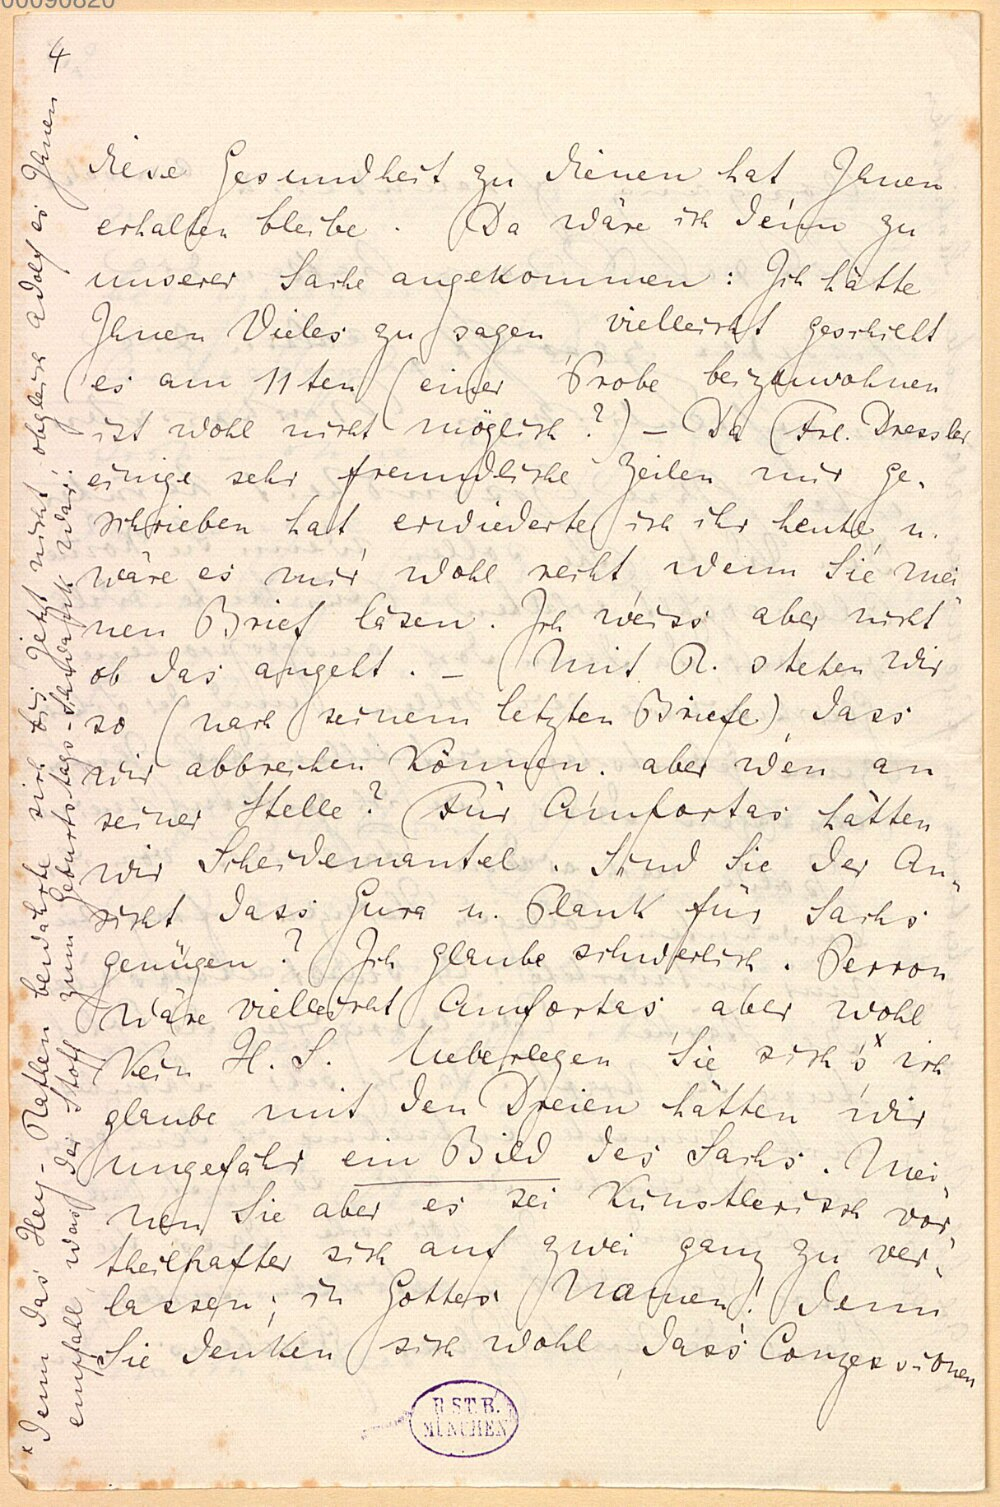 00090820
4
diese Gesundheit zu dienen hat Ihnen
erhalten bleibe. Da wäre ich denn zu
unserer Sache angekommen: Ich hätte
Ihnen Vieles zu sagen vielleicht geschieht
es am 11ten (einer Probe beizuwohnen
ist wohl nicht möglich?) – Da Frl. Dressler
einige sehr freundliche Zeilen mir ge-
schrieben hat erwiederte ich ihr heute u.
wäre es mir wohl recht wenn Sie mei
nen Brief läsen. Ich weiss aber nicht
ob das angeht. – Mit R. stehen wir
so (nach seinem letzten Briefe) dass
wir abbrechen können. aber wen an
seiner Stelle? Für Amfortas hätten
wir Scheidemantel. Sind Sie der An-
sicht dass Gura u. Plank für Sachs
genügen? Ich glaube schwerlich. Perron
wäre vielleicht Amfortas aber wohl
kein H. S. Ueberlegen Sie sich's x ich
glaube mit den Dreien hätten wir
ungefähr ein Bild des Sachs. Mei-
nen Sie aber es sei künstlerisch vor-
theilhafter sich auf zwei ganz zu ver-
lassen; in Gottes Namen! denn
Sie denken sich wohl dass Conzessionen
x denn das Hey-Rathen bewährte sich bis jetzt nicht obgleich Adolf es Ihnen
empfahl, was der Stoff zum Geburtstags-Schwank war!
B. ST. B.
MÜNCHEN